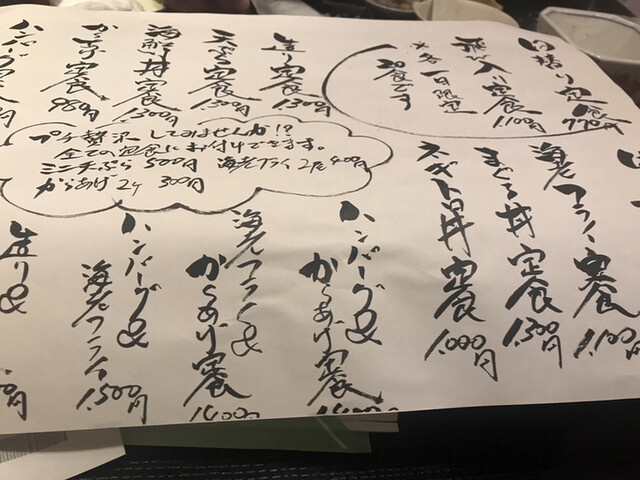 日替り定食 770円
飛び入り定食 1,100円
※各一日限定
30食です
造り定食 1,300円
天ぷら定食 1,300円
海鮮丼定食 1,300円
定食 980円
ハンバーグ定食
プチ贅沢してみませんか!?
全ての定食にお付けできます。
ミニ天ぷら 500円 海老フライ2尾 400円
からあげ2ヶ 300円
海老フライ定食 1,100円
まぐろ丼定食 1,300円
ネギトロ丼定食 1,000円
ハンバーグ&
からあげ定食 1,400
海老フライ&
からあげ定食 1,400
ハンバーグ&
海老フライ 1,500円
造り&